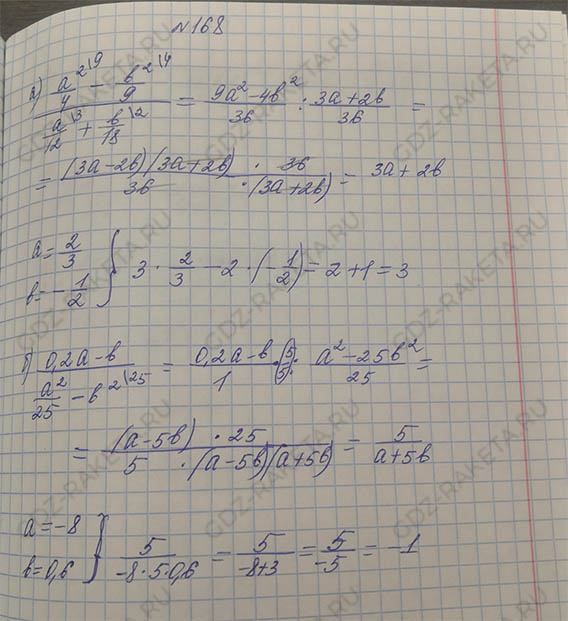 №168
а) (a²/4 \9 − b²/9 \4) / (a/12 \3 + b/18 \2) = (9a²−4b²)/36 : (3a+2b)/36 =
= ((3a−2b)(3a+2b) · 36) / (36 · (3a+2b)) = 3a+2b
a=2/3 b=−1/2 } 3 · 2/3 − 2 · (−1/2) = 2+1=3
б) (0,2a−b) / (a²/25 − b² \25) = (0,2a−b)/1 · (5/5) : (a²−25b²)/25 =
= ((a−5b) · 25) / (5 · (a−5b)(a+5b)) = 5/(a+5b)
a=−8 b=0,6 } 5/(−8·5·0,6) = 5/(−8+3) = 5/−5 = −1
GDZ-RAKETA.RU